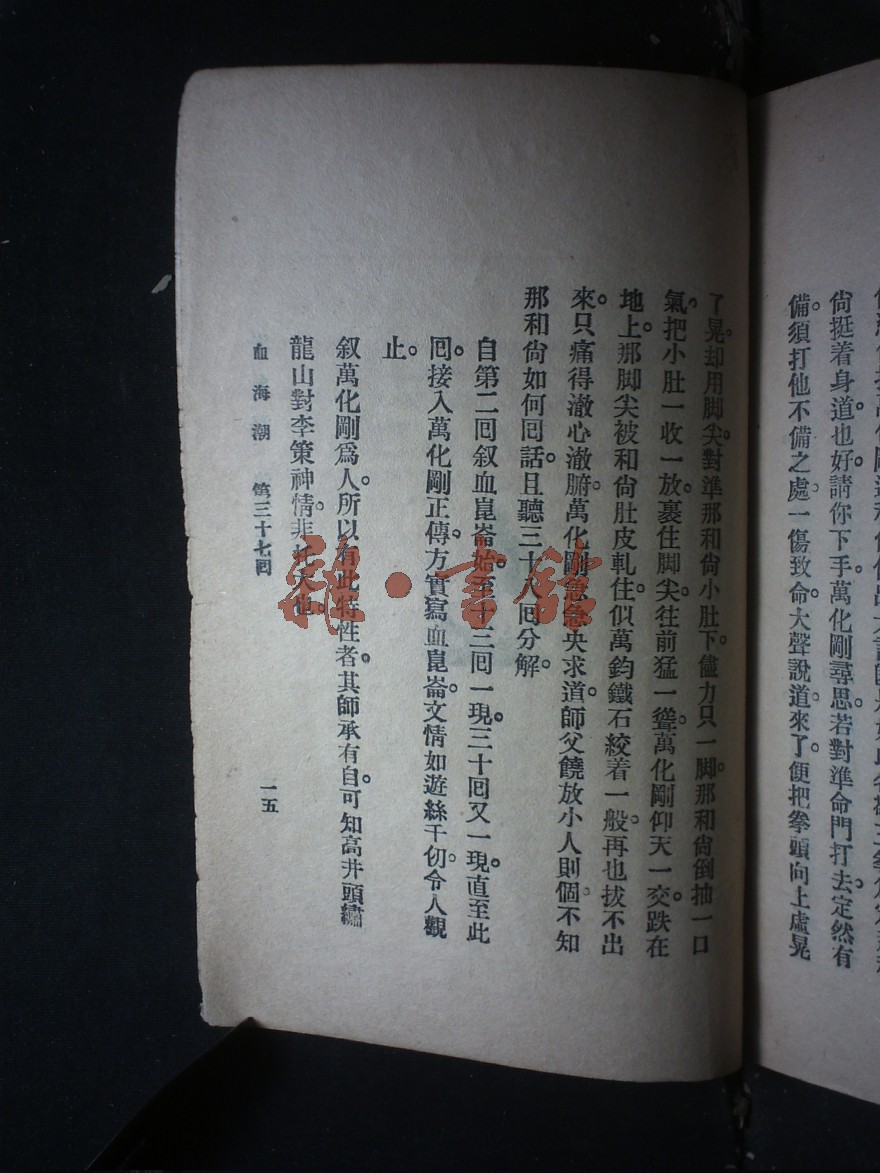 尙挺着身道也好。請你下手。萬化剛尋思。若對準命門打去。定然有
備。須打他不備之處。一傷致命。大聲說道。來了。便把拳頭向上虛晃
了晃。却用脚尖對準那和尙小肚下。儘力只一脚。那和尙倒抽一口
氣。把小肚一收一放。裹住脚尖。往前猛一聳。萬化剛仰天一交。跌在
地上。那脚尖被和尙肚皮軋住。似萬鈞鐵石絞着一般。再也拔不出
來。只痛得澈心澈腑。萬化剛急急央求道。師父饒放小人則個。不知
那和尙如何囘話。且聽三十八囘分解。
自第二囘叙血崑崙始。至十三囘一現。三十囘又一現。直至此
囘。接入萬化剛正傳。方實寫血崑崙。文情如遊絲千仞。令人觀
止。
叙萬化剛爲人。所以有此特性者。其師承有自。可知高井頭繡
龍山對李策神情。非托大也。
血海潮 第三十七囘 一五
雜·書館